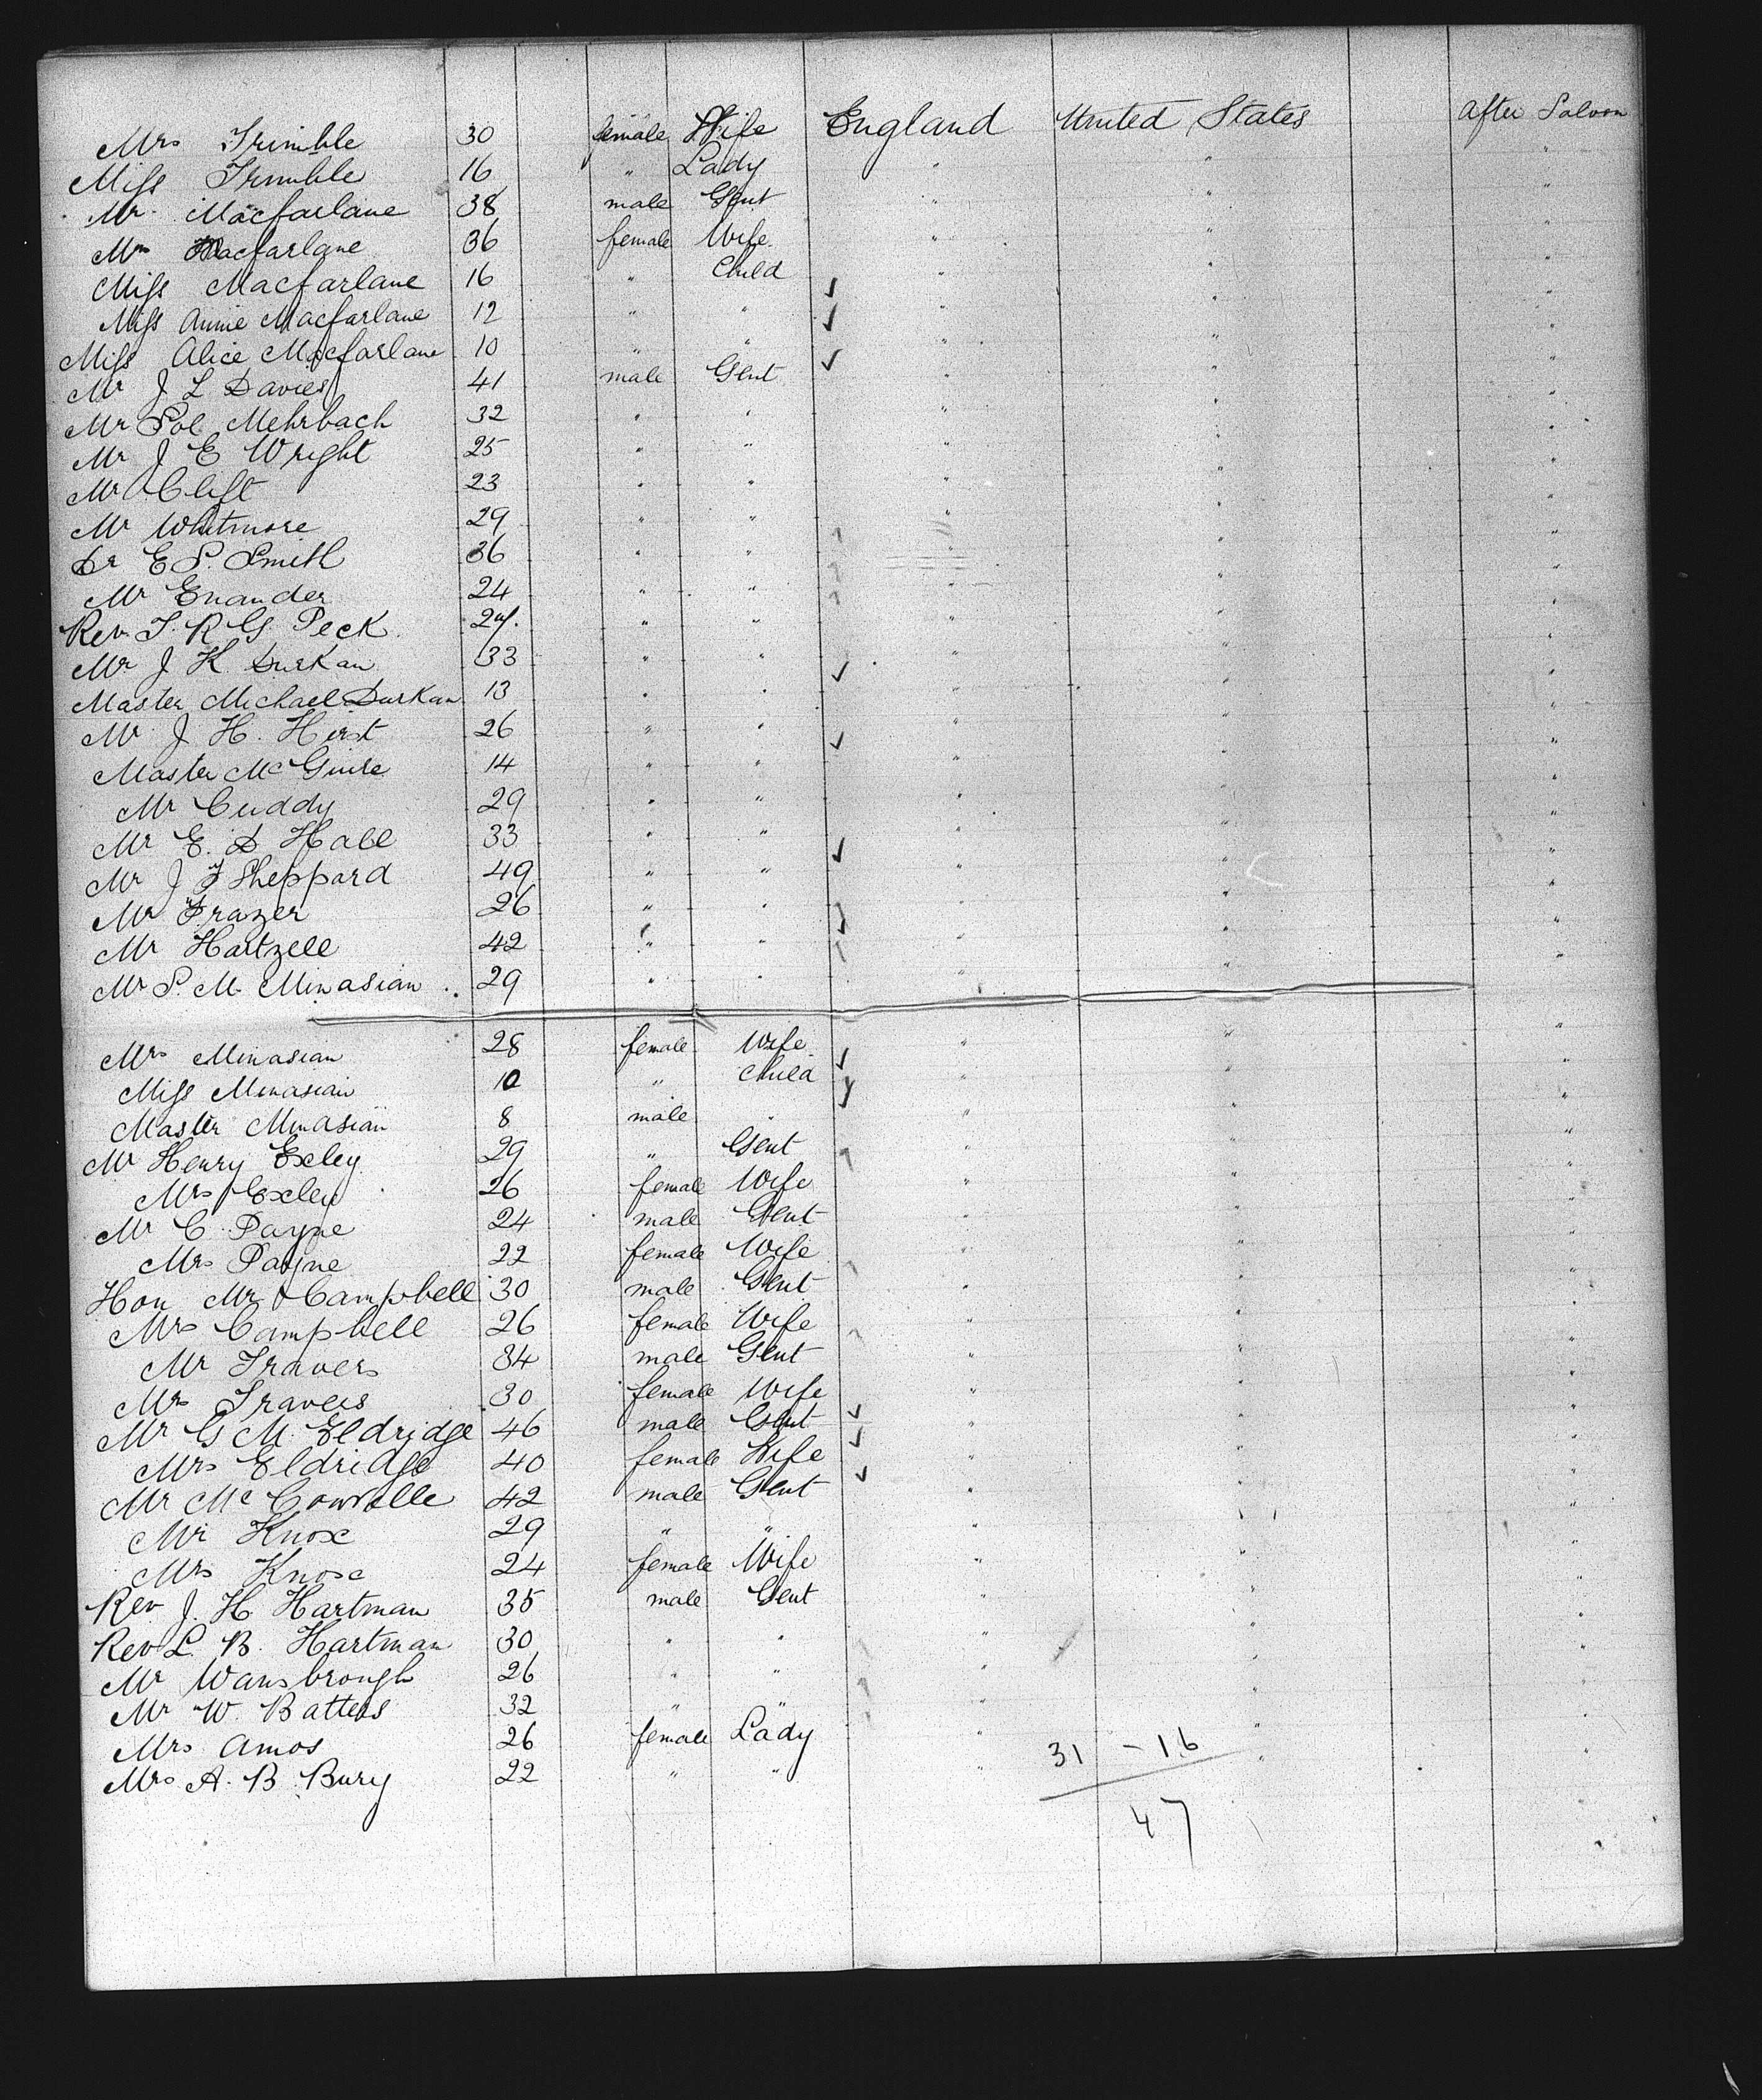 Mrs Trimble 30 female Wife England United States After Saloon
Miss Trimble 16 " Lady " " "
Mr Macfarlane 38 male Gent " " "
Mrs Macfarlane 36 female Wife " " "
Miss Macfarlane 16 " Child " " "
Miss Annie Macfarlane 12 " " " " "
Miss Alice Macfarlane 10 " " " " "
Mr J L Davies 41 male Gent " " "
Mr Sol Mehrbach 32 " " " " "
Mr J E Wright 25 " " " " "
Mr Clift 23 " " " " "
Mr Whitmore 29 " " " " "
Dr E S Smith 36 " " " " "
Mr Enander 24 " " " " "
Rev T. R G Peck 24 " " " " "
Mr J K Durkan 33 " " " " "
Master Michael Durkan 13 " " " " "
Mr J H. Hirst 26 " " " " "
Master McGuire 14 " " " " "
Mr Cuddy 29 " " " " "
Mr E. D Hall 33 " " " " "
Mr J F Sheppard 49 " " " " "
Mr Frazer 26 " " " " "
Mr Hartzell 42 " " " " "
Mr S. M Minasian 29 " " " " "
Mrs Minasian 28 female Wife " " "
Miss Minasian 10 " Child " " "
Master Minasian 8 male " " " "
Mr Henry Exley 29 " Gent " " "
Mrs Exley 26 female Wife " " "
Mr C Payne 24 male Gent " " "
Mrs Payne 22 female Wife " " "
Hon Mr Campbell 30 male Gent " " "
Mrs Campbell 26 female Wife " " "
Mr Travers 34 male Gent " " "
Mrs Travers 30 female Wife " " "
Mr G M. Eldridge 46 male Gent " " "
Mrs Eldridge 40 female Wife " " "
Mr 42 male Gent " " "
Mr Knox 29 " " " " "
Mrs Knox 24 female Wife " " "
Rev J. H Hartman 35 male Gent " " "
Rev L. B. Hartman 30 " " " " "
Mr Wansbrough 26 " " " " "
Mr W. Batters 32 " " " " "
Mrs Amos 26 female Lady " " "
Mrs A. B Bury 22 " " " " "
31 - 16
47